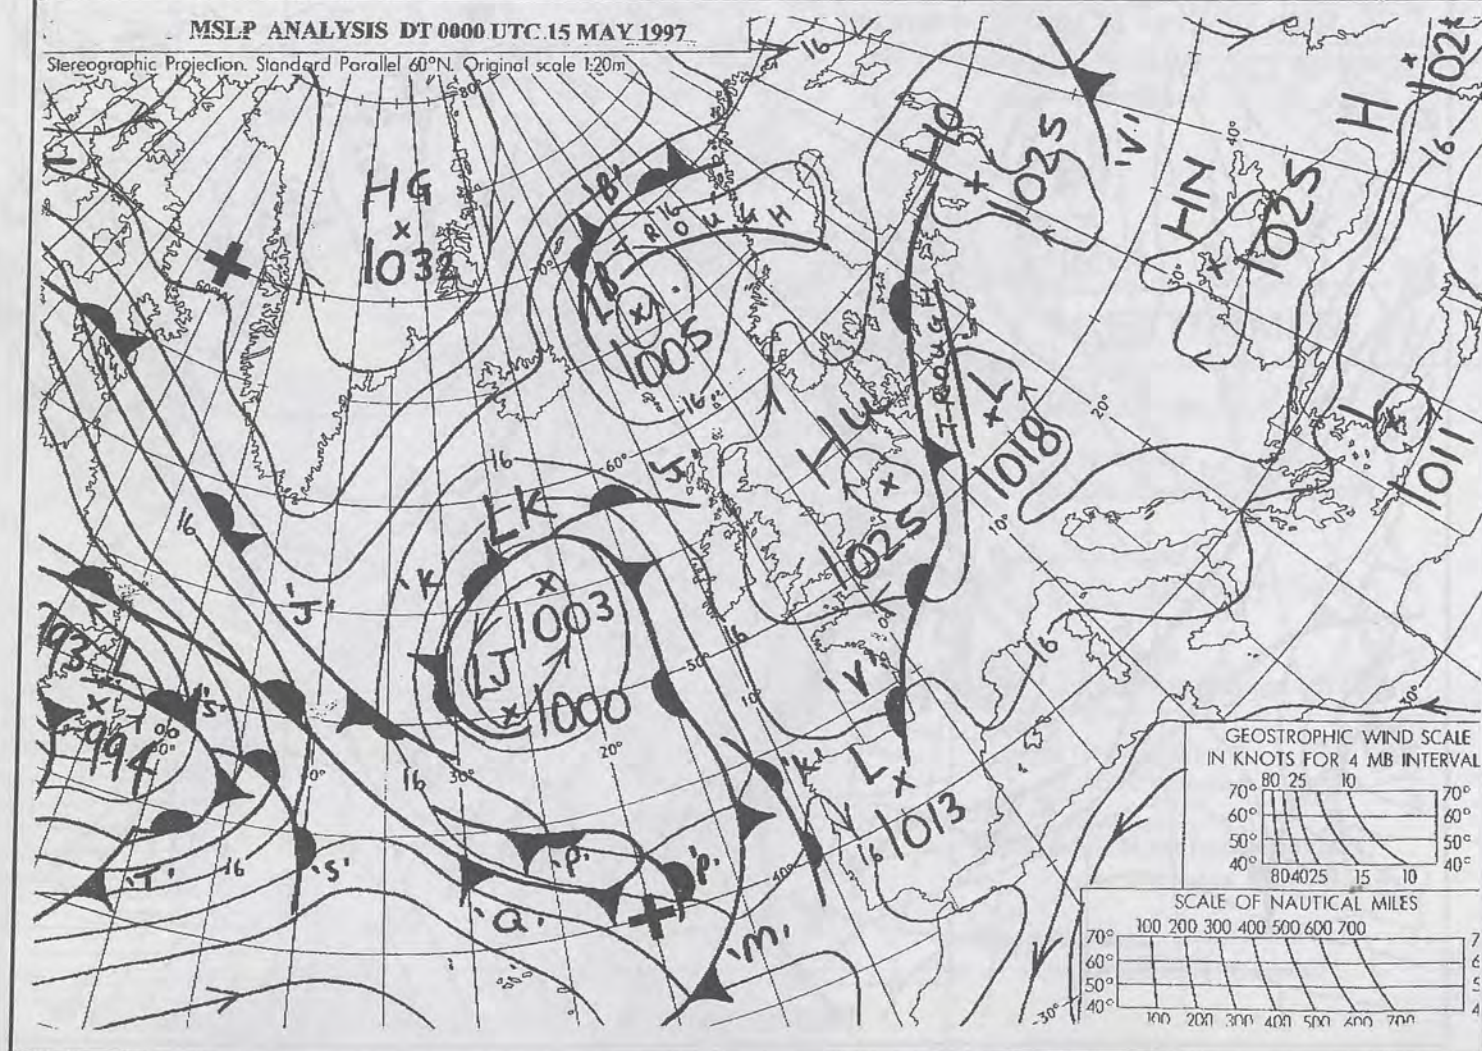 MSLP ANALYSIS DT 0000 UTC 15 MAY 1997
Stereographic Projection. Standard Parallel 60°N. Original scale 1:20m
80°
16
HG
1032
'B'
16
TROUGH
LB
1005
0°
16
10
1025
'V'
40°
H
16
HN
1025
30°
TROUGH
L
1018
20°
10°
HU
1025
L
1011
16
60°
LK
'K'
1003
LJ
1000
16
'J'
993
L
994
'S'
40°
16
50°
10°
20°
30°
16
'V'
16
10°
'K'
L
1013
16
'P'
'P'
'Q'
40°
'M'
'T'
16
'S'
30°
GEOSTROPHIC WIND SCALE
IN KNOTS FOR 4 MB INTERVAL
80 25 10
70° 70°
60° 60°
50° 50°
40° 40°
80 40 25 15 10
SCALE OF NAUTICAL MILES
100 200 300 400 500 600 700
70°
60°
50°
40°
100 200 300 400 500 600 700